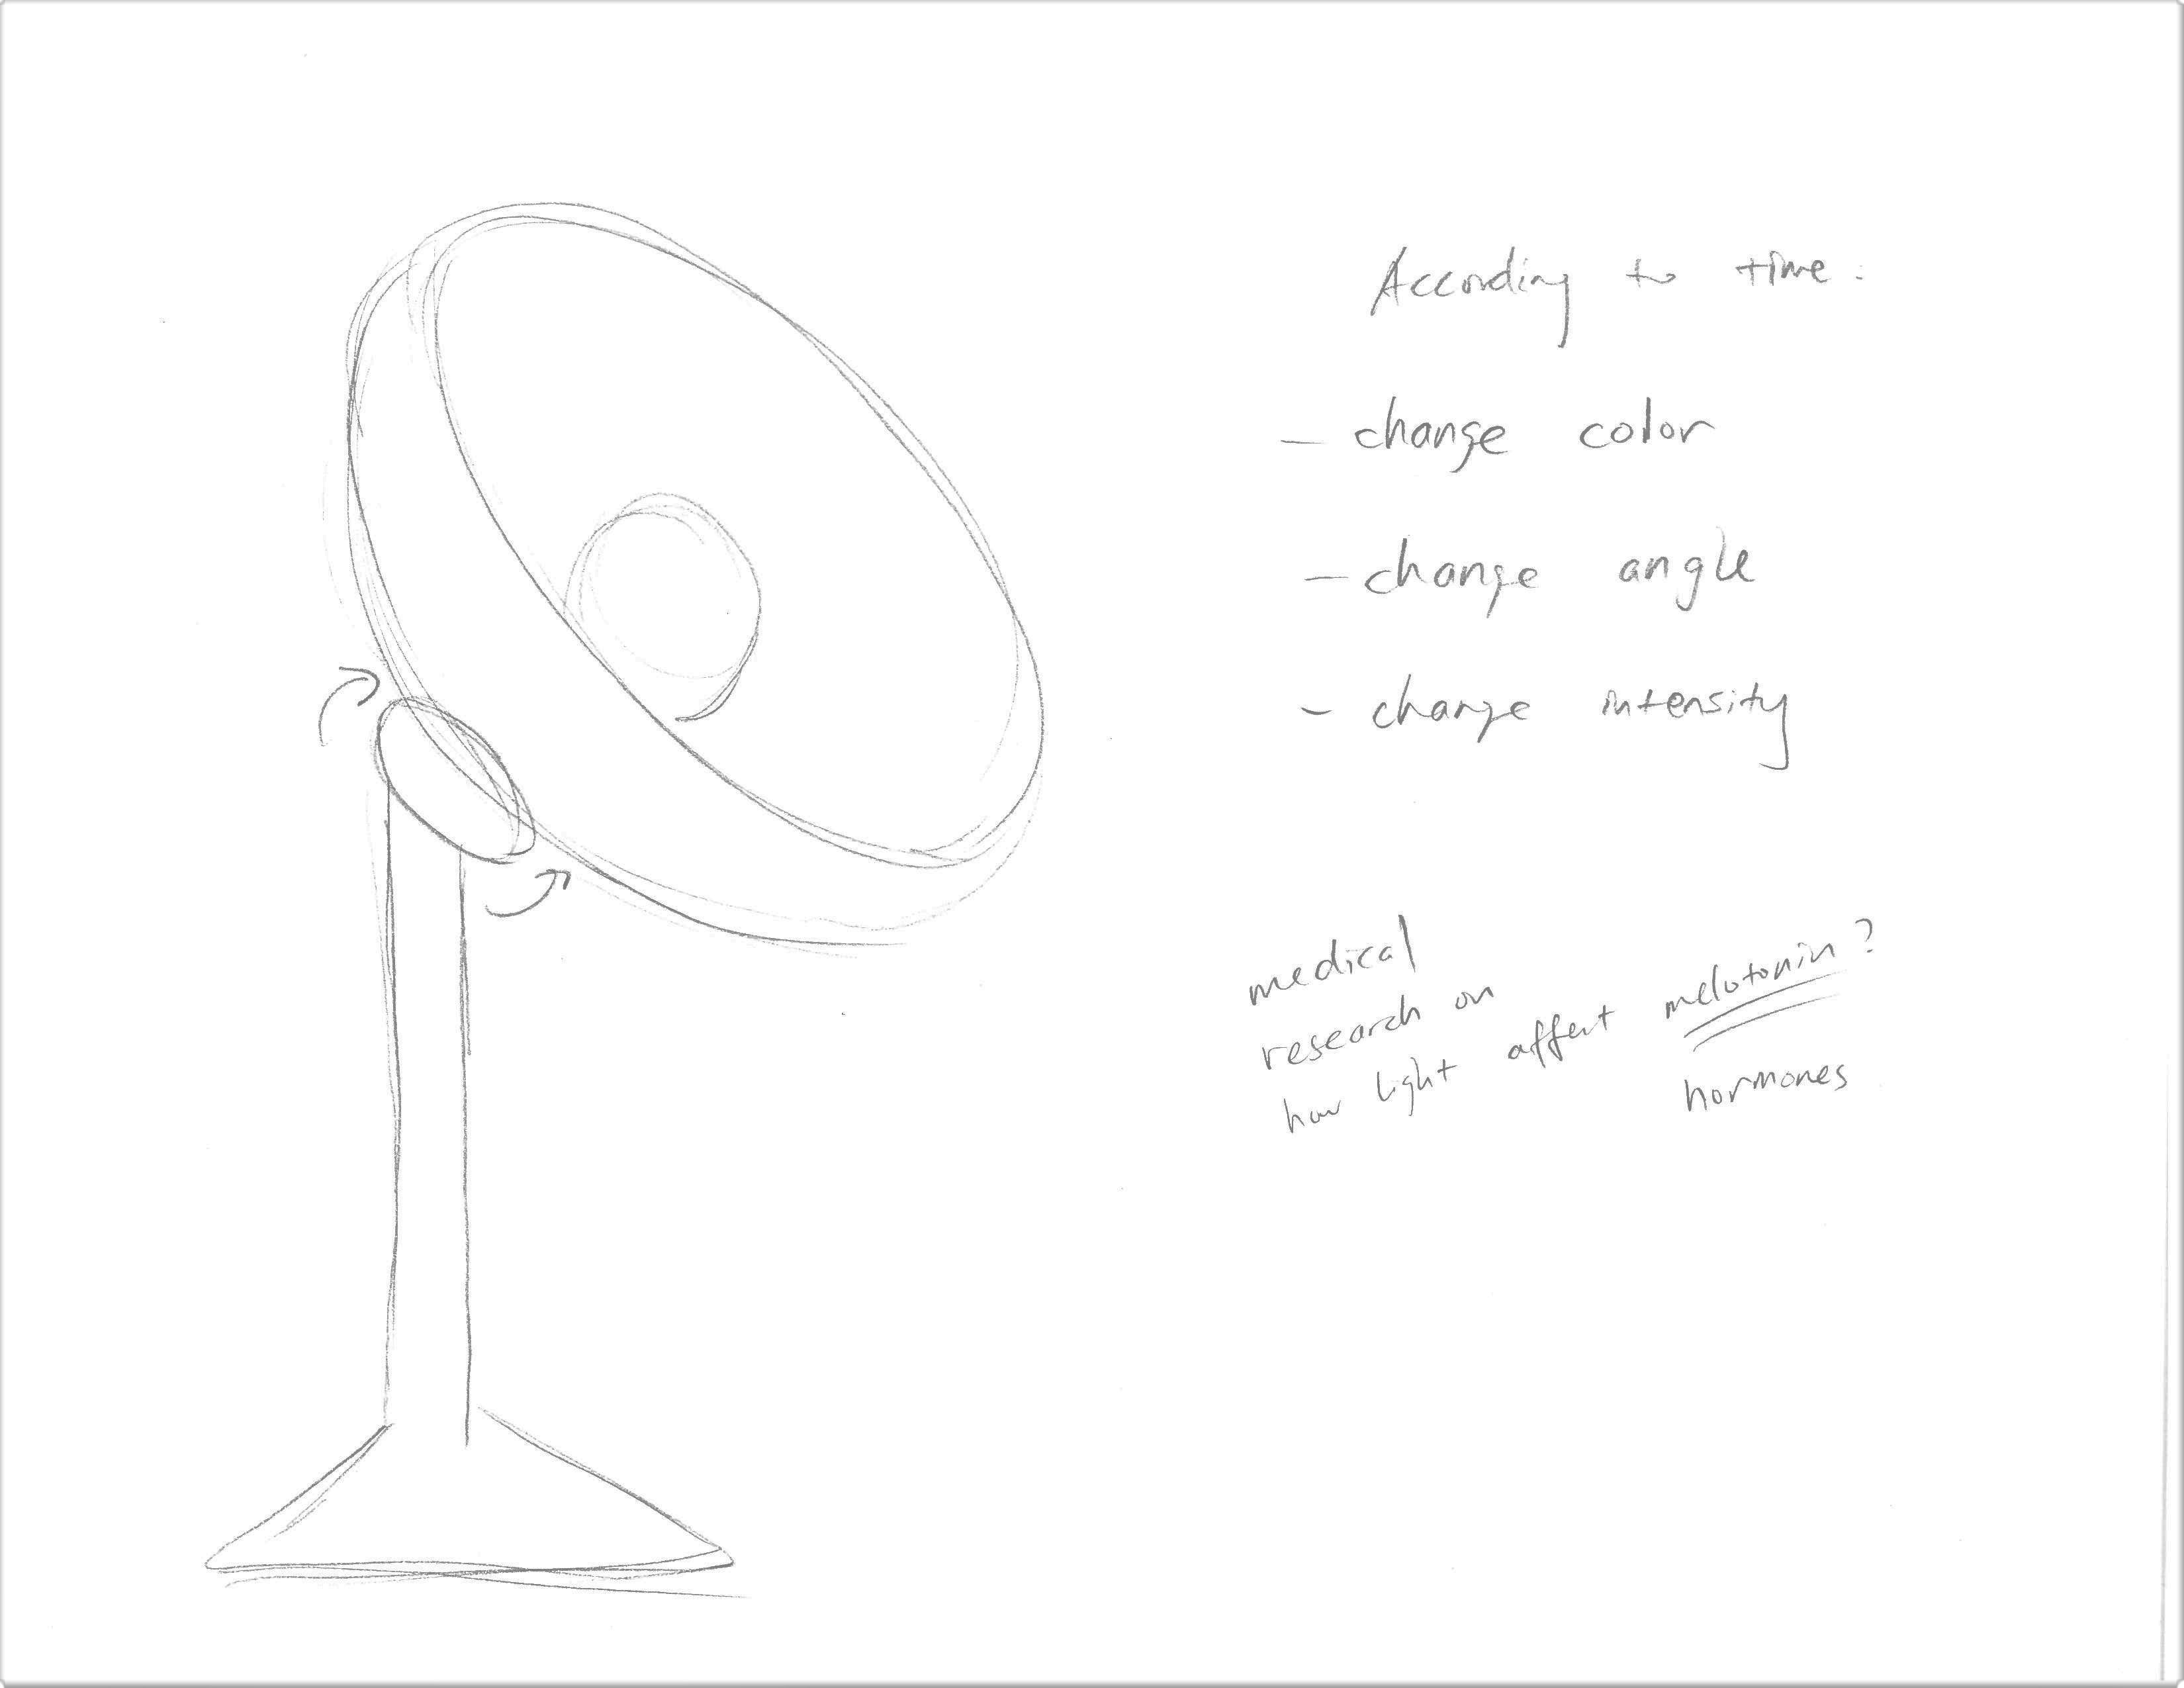 According to time:
- change color
- change angle
- change intensity
medical
research on
how light affect melotonin?
hormones